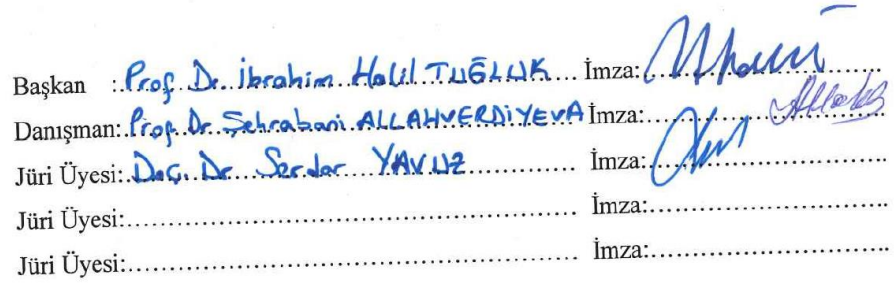 Başkan :Prof. Dr. İbrahim Halil TUĞLUK İmza:
Danışman:Prof. Dr. Şehrabani ALLAHVERDİYEVA İmza:
Jüri Üyesi:Doç. Dr. Serdar YAVUZ İmza:
Jüri Üyesi: İmza:
Jüri Üyesi: İmza: